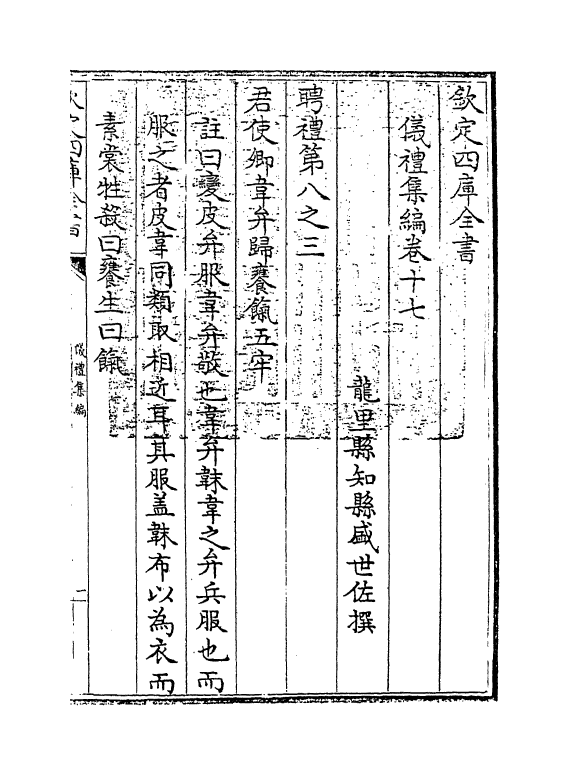 欽定四庫全書
儀禮集編卷十七
龍里縣知縣盛世佐撰
聘禮第八之三
君使卿韋弁歸饔餼五牢
註曰變皮弁服韋弁敬也韋弁韎韋之弁兵服也而
服之者皮韋同類取相近耳其服盖韎布以為衣而
素裳牲殺曰饔生曰餼
欽定四庫全書
儀禮集編